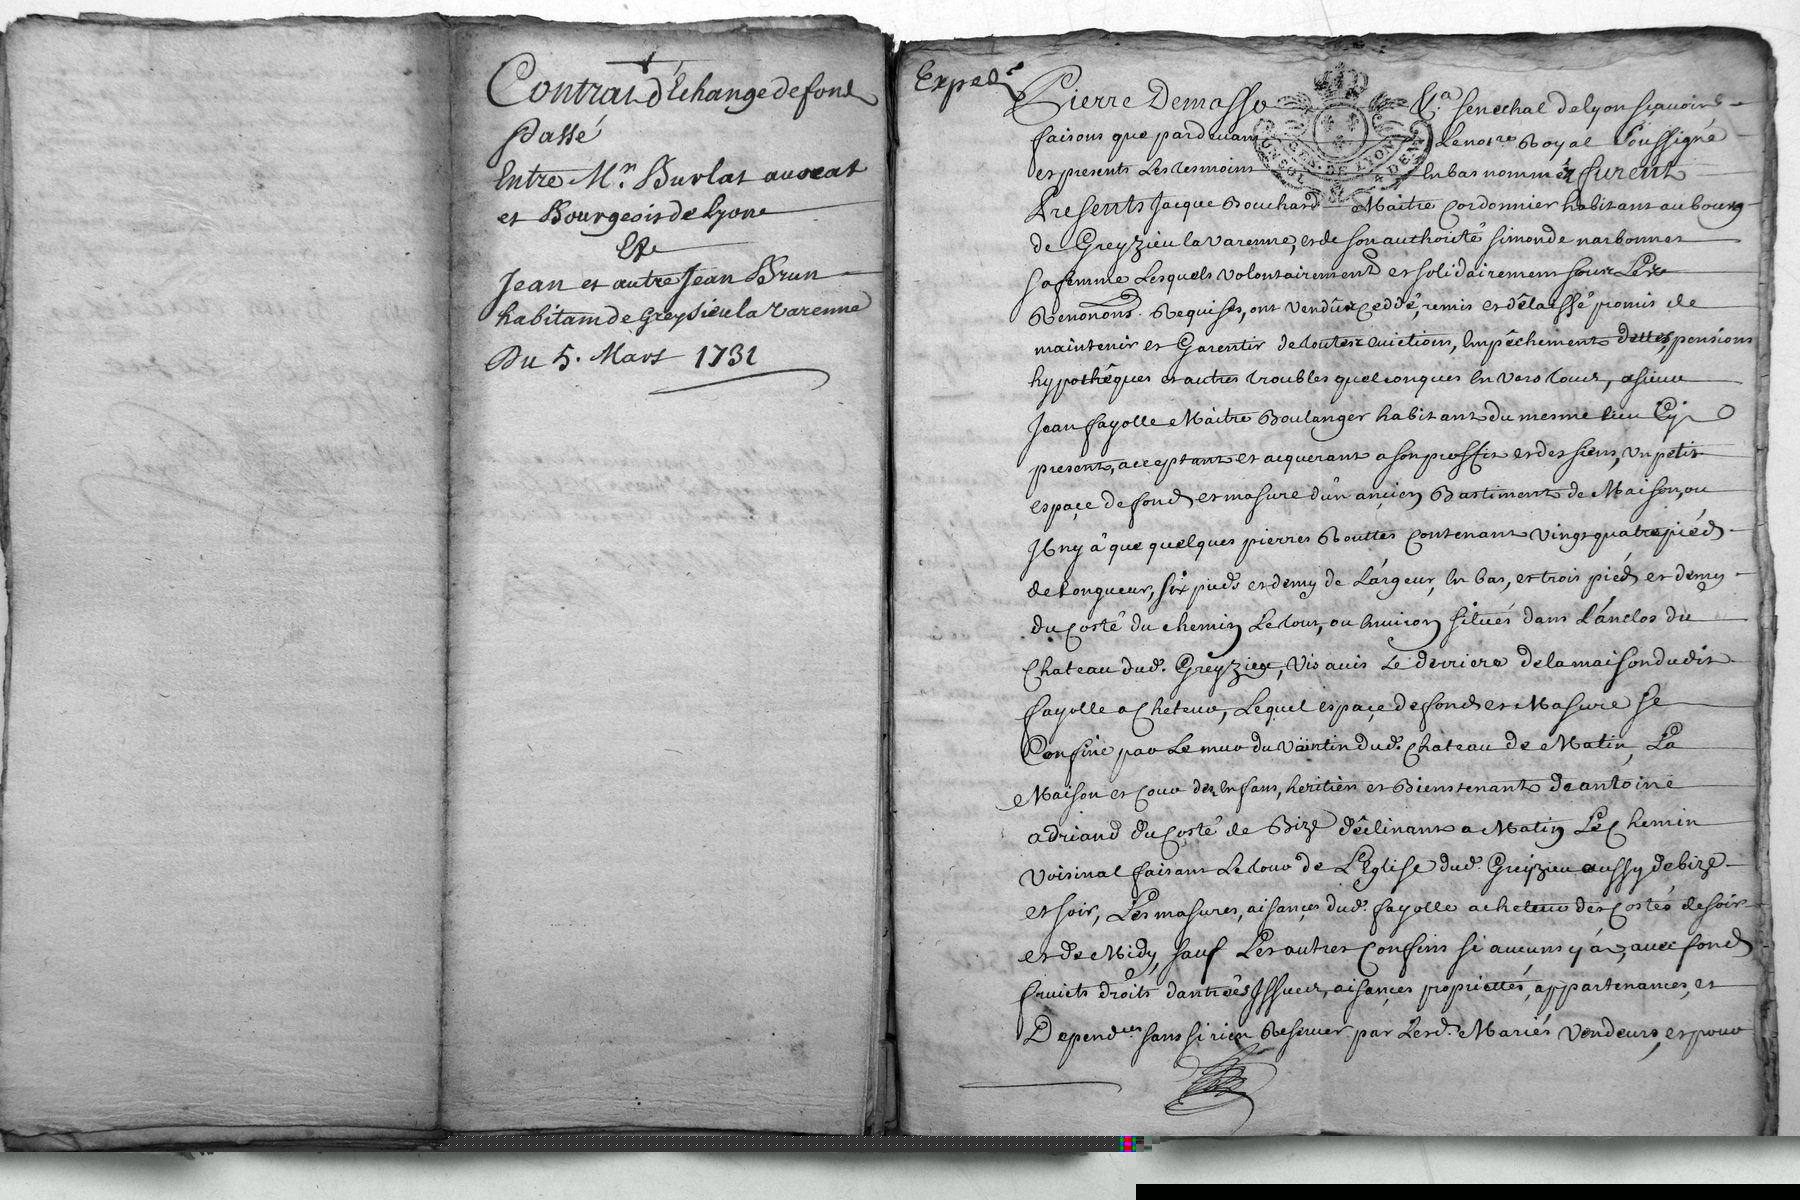 Contrat d'Echange de fond
Passé
Entre Mr. Burlat auocat
et Bourgeois de Lyon
Et
Jean et autre Jean Brun
habitam de Greysieu la Varenne
Du 5. Mars 1731
Exped.
Pierre Demasso Sr. a senechal de lyon sçauoir
faisons que pardeuam Le notre Royal soussigné
et presents Les tesmoins En bas nommés furent
Presents Jacque Bouchard Maitre Cordonnier habitant au bourg
de Greyzieu la varenne, et de son authorité simonde narbonnet
sa femme Lesquels volontairement et solidairement sous Les
Renonons. Requises, ont vendu ceddé, remis et délaissé promis de
maintenir et Garentir de toutes euictions, Empêchements dettes, pensions
hypothêques et autres troubles quelconques En vers tous, a sieur
Jean fayolle Maitre Boulanger habitant du mesme lieu Cy
present, acceptant et acquerant a son proffit et des siens, un petit
espaçe de fond et masure d'ûn ançien Bastiment de Maison, ou
Il ny â que quelques pierres Routtes Contenant vingt quatre piéds
de Longueur, six pieds et demy de Largeur, En bas, et trois piéds et demy
du Costé du chemin Le tout, ou Enuiron situés dans L'ánclos du
Chateau dud. Greyzieu, Vis auis Le derriere de la maison dudit
fayolle acheteur, Lequel espaçe de fond et Masure se
Confine par Le mur du Vaintin dud. Chateau de Matin, La
Maison et Cour des Enfans, heritiers et Bienstenants de antoine
adriand du Costé de Bize déclinant a Matin Le Chemin
Voisinal faisant Le tour de L'Eglise dud. Greyzieu aussy de bize
et soir, Les masures, aisançes dud. fayolle acheteur des Costés de soir
et de Midy, sauf Les autres Confins si aucuns y'â, auec fond
fruicts droits dantrées Issues, aisançes propriettés, appartenances, et
Depend.ces sans si rien Reseruer par Lesd. Mariés Vendeurs, et pour